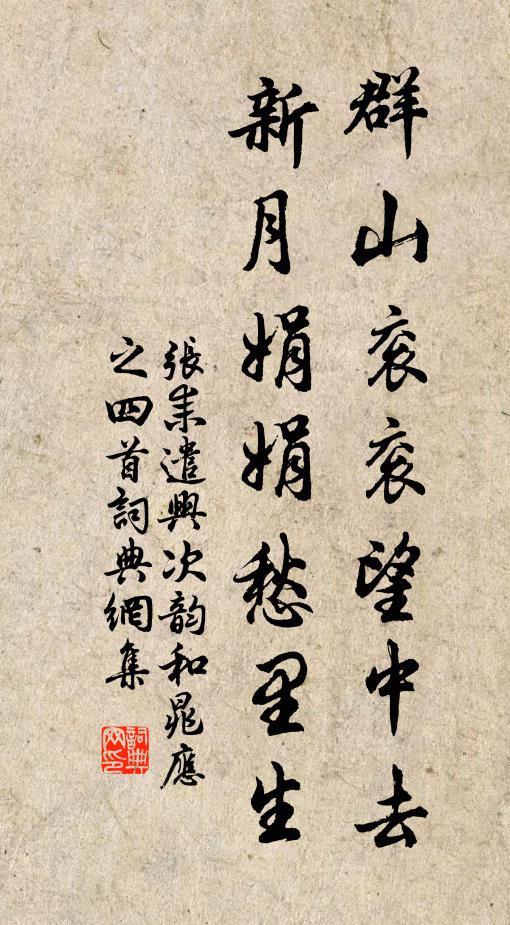 群山衮衮望中去
新月娟娟愁里生
張耒遣興次韵和晁應
之四首詞典網集
詞典
网印